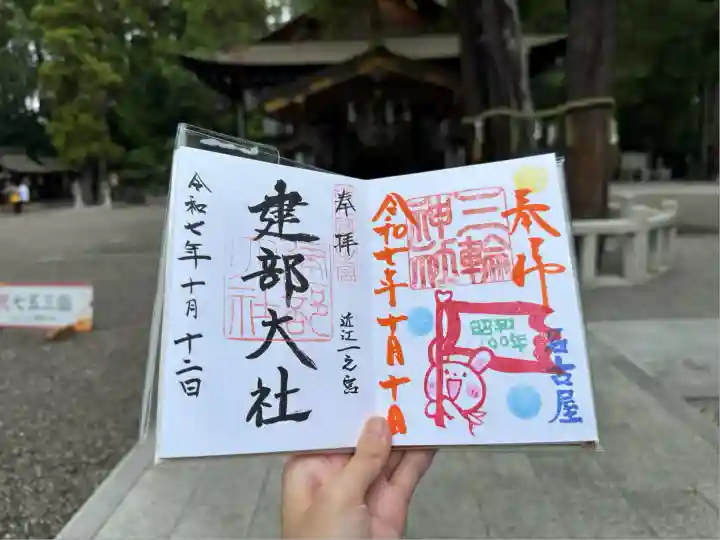 奉拝
名古屋
三輪
神社
昭和
100年
令和七年十月十日
奉拝
近江一之宮
建部大社
令和七年十月十二日
七五三